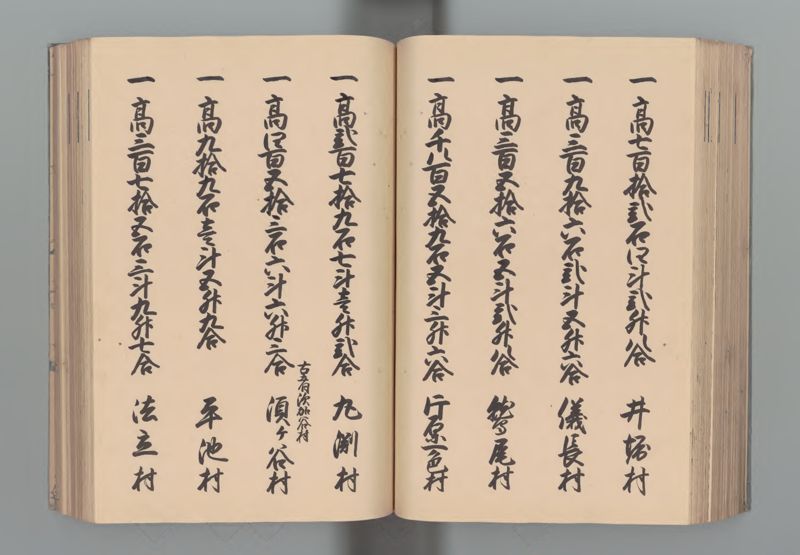 一 高七百拾弐石四斗弐升八合 井堀村
一 高三百九拾六石弐斗五升六合 儀長村
一 高三百五拾六石五斗弐升八合 鷲尾村
一 高千八百五拾九石五斗三升六合 片原一色村
一 高弐百七拾九石七斗壱升弐合 丸渕村
一 高四百五拾三石六斗六升三合 須ケ谷村
一 高九拾九石壱斗五升九合 平池村
一 高三百七拾五石三斗九升七合 法立村